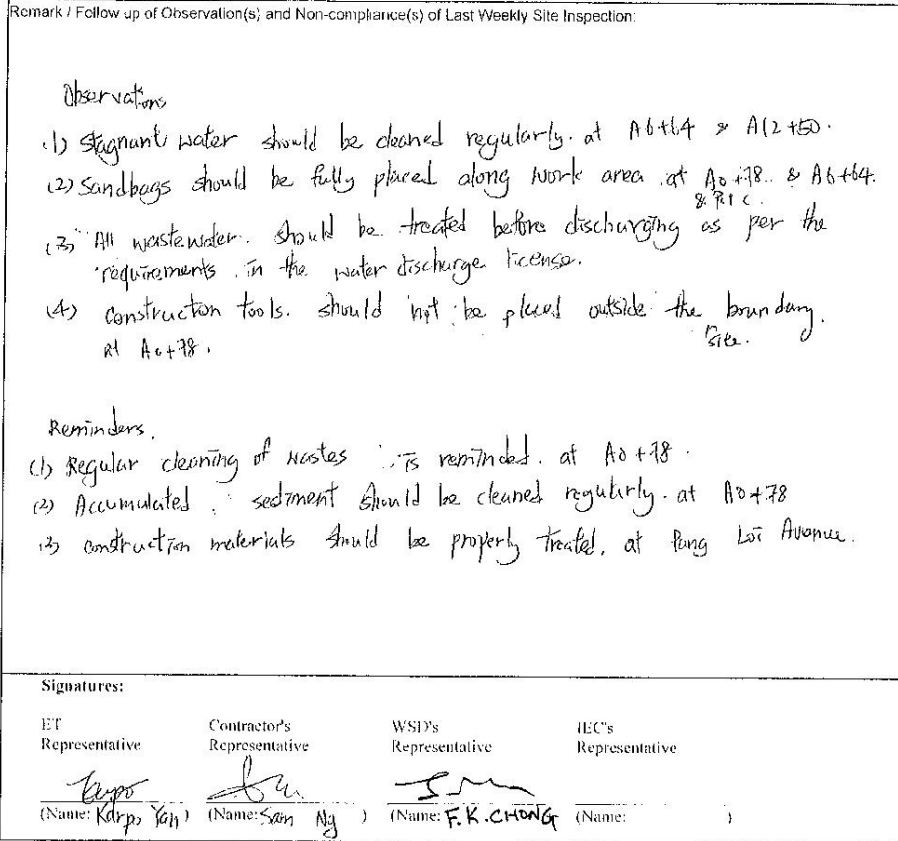 Remark / Follow up of Observation(s) and Non-compliance(s) of Last Weekly Site Inspection:
Observations
(1) Stagnant water should be cleaned regularly. at A6+64 & A12+50.
(2) Sandbags should be fully placed along work area at A0+78. & A6+64.
(3) All wastewater. should be treated before discharging as per the
requirements in the water discharge license.
(4) Construction tools. should not be placed outside the boundary.
site.
at A0+78.
Reminders.
(1) Regular cleaning of wastes is reminded. at A0+78.
(2) Accumulated sediment should be cleaned regularly. at A0+78
(3) construction materials should be properly treated, at Pung Loi Avenue.
Signatures:
ET Contractor's WSD's IEC's
Representative Representative Representative Representative
(Name: Karpo Yan) (Name: Sam Ng ) (Name: F.K. CHONG (Name: )